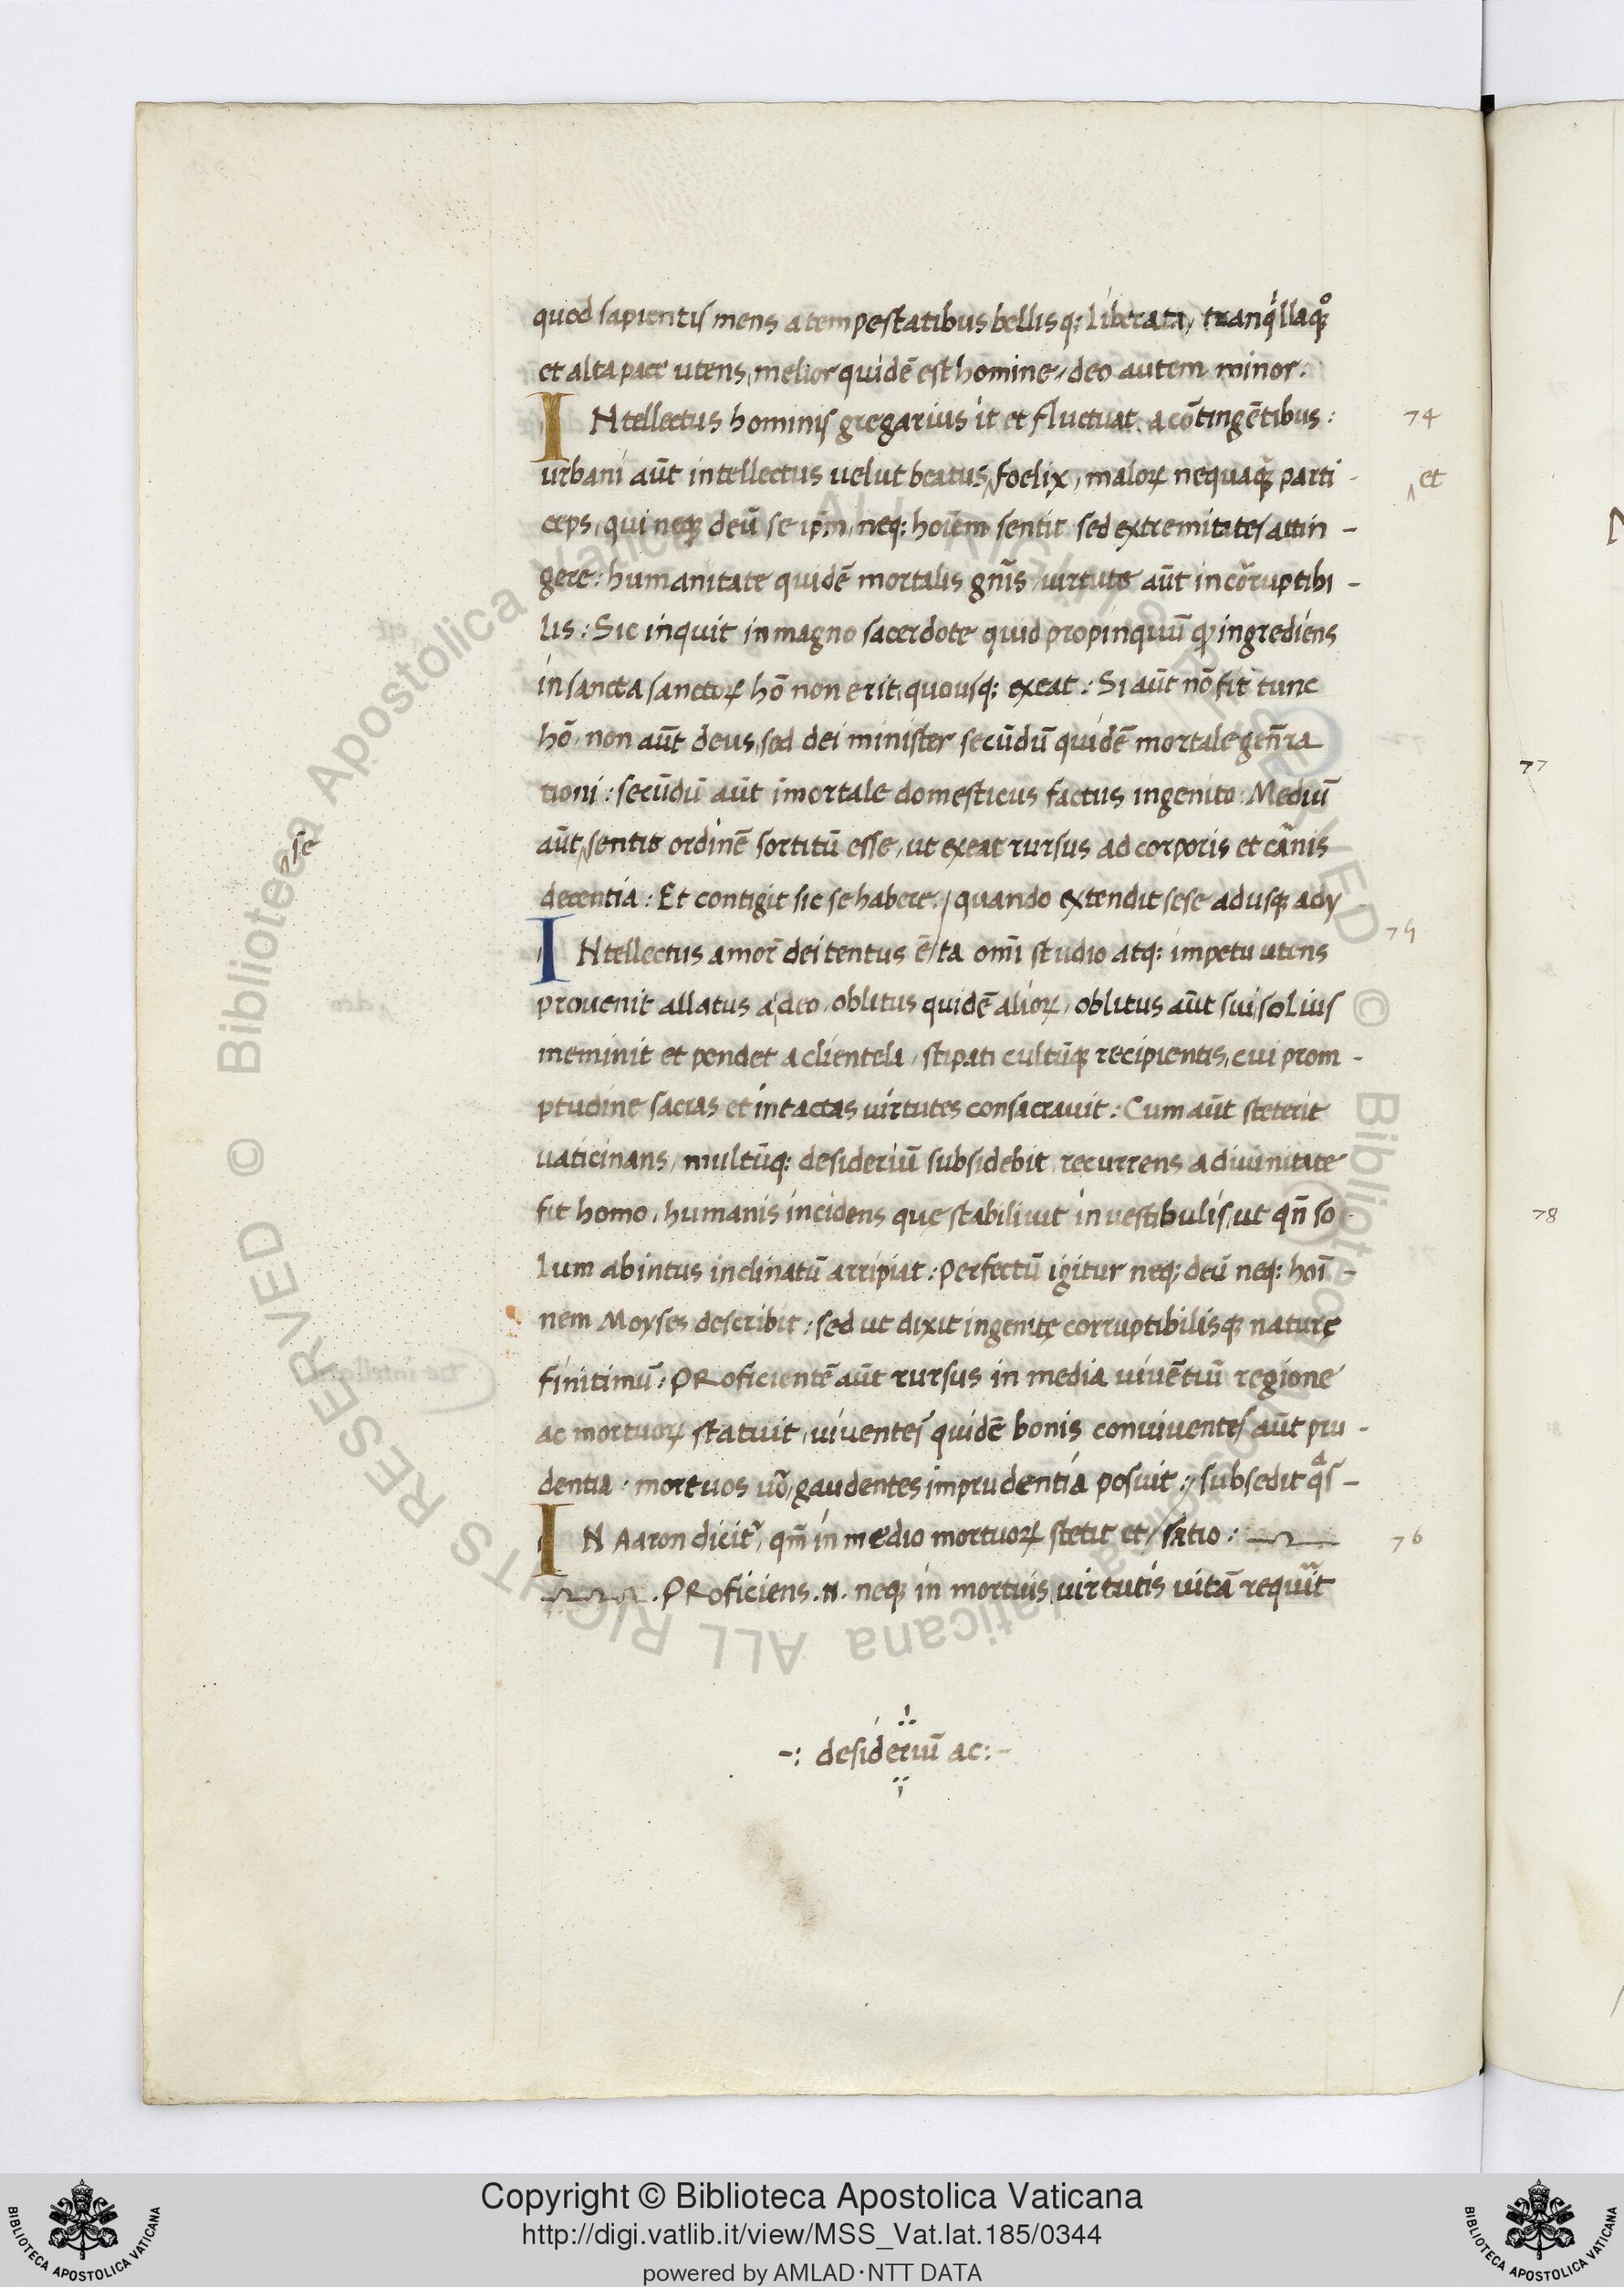 quod sapientis mens a tempestatibus bellisq; liberata, tranqͥllaq̊
et alta pace utens, melior quidē est homine, deo autem minor.
INtellectus hominis gregarius it et fluctuat a cōtingētibus: 74
urbani aūt intellectus uelut beatus, ‸foelix, maloꝝ nequaq̃ parti- ‸et
ceps, qui neqȝ deū se ip̄m, neq; hoīem sentit sed extremitates attin-
gere: humanitate quidē mortalis gn̄is, uirtute aūt incōruptibi-
lis: Sic inquit in magno sacerdote quid propinquū ꝙ ingrediens
in sancta sanctoꝝ hō non erit, quousq; exeat: Si aūt nō fit tunc
hō, non aūt deus, sed dei minister secūdū quidē mortale gen̄ra
tioni: secūdū aūt īmortale domesticus factus ingenito: Mediū
‸se aūt ‸sentit ordinē sortitū esse, ut exeat rursus ad corporis et cānis
decentia: Et contigit sic se habere, quando extendit sese adusqȝ ady
INtellectus amor̄ dei tentus ē/ta om̄i studio atq; impetu utens 75
prouenit allatus a deo, oblitus quidē alioꝝ, oblitus aūt sui, solius
meminit et pendet a clientela, stipati cultūqȝ recipientis, cui prom-
ptudine sacras et intactas uirtutes consacrauit: Cum aūt steterit
uaticinans, multūq; desideriū subsidebit, recurrens a diuinitate
fit homo, humanis incidens que stabiliuit in uestibulis, ut qn̄ so
lum ab intus inclinatū arripiat: Perfectū igitur neq; deū neq; hoī-
nem Moyses describit: sed ut dixit ingenitę corruptibilisqȝ naturę
finitimū: PRoficientē aūt rursus in media uiuētiū regione
ac mortuoꝝ statuit, uiuentes quidē bonis conuiuentes aūt pru-
dentia: mortuos uō, gaudentes imprudentia posuit: / subsedit qᵃs-
IN Aaron dicit᷑, qm̄ in medio mortuoꝝ stetit et / satio: 76
.PRoficiens .n. neqȝ in mortuis, uirtutis uitā requīt
-: desideriū ac:-
77
78
Copyright © Biblioteca Apostolica Vaticana
http://digi.vatlib.it/view/MSS_Vat.lat.185/0344
powered by AMLAD·NTT DATA
BIBLIOTECA APOSTOLICA VATICANA
BIBLIOTECA APOSTOLICA VATICANA
© Biblioteca Apostolica Vaticana ALL RIGHTS RESERVED © Biblioteca Apostolica Vaticana ALL RIGHTS RESERVED